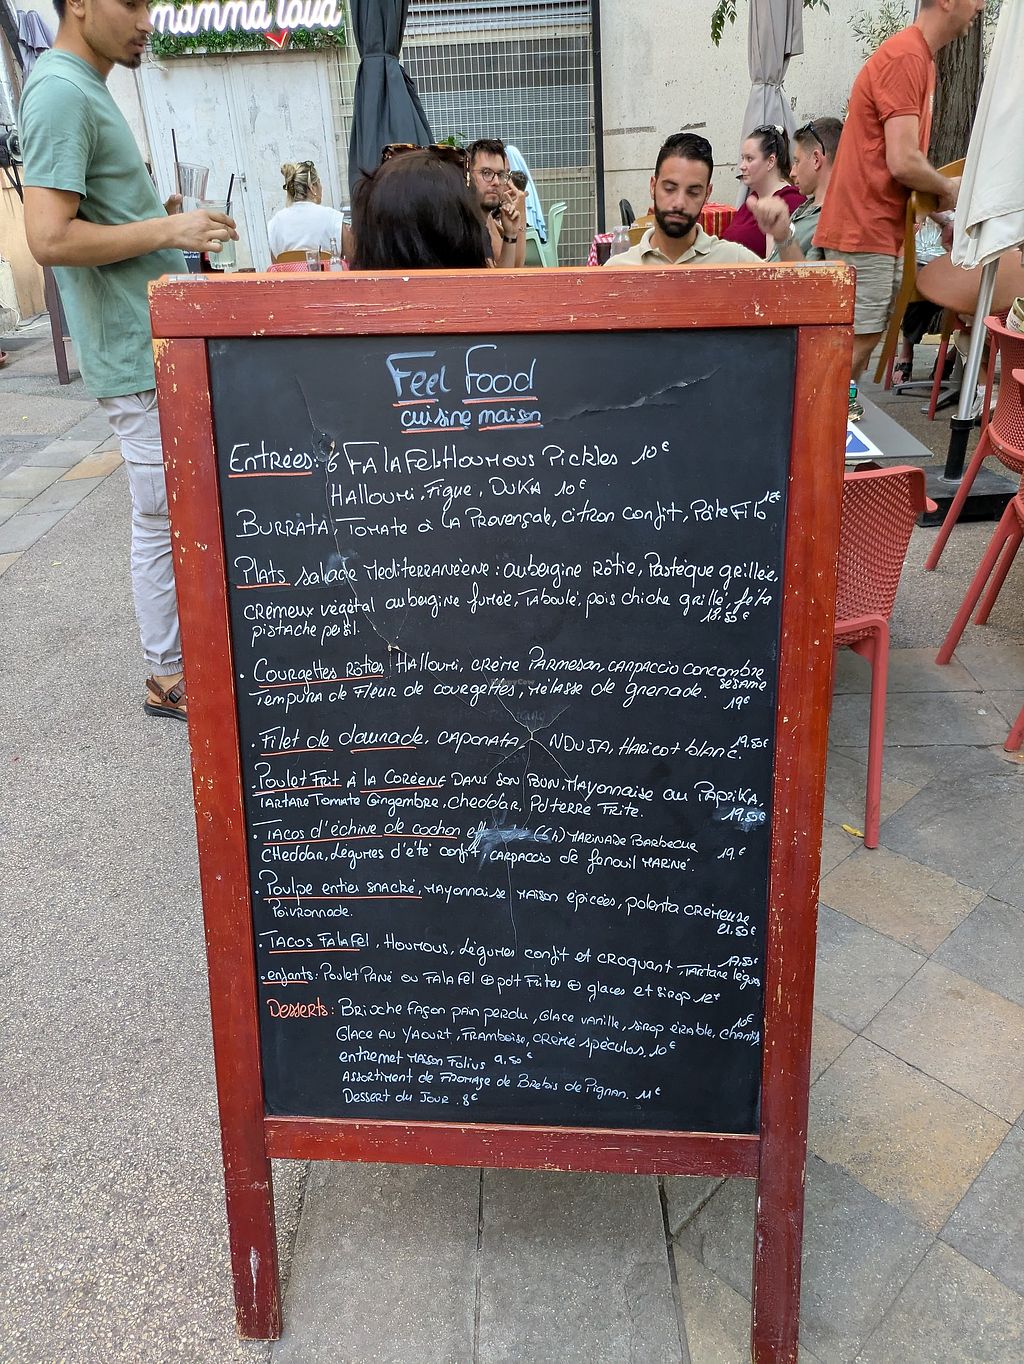 mamma lova
Feel Food
cuisine maison
Entrées: 6 Falafel Houmous Pickles 10€
Halloumi, Figue, Duka 10€
Burrata, Tomate à la Provençale, citron confit, Pâte Filo 12€
Plats salade Mediterranéene : aubergine Rôtie, Pastèque grillée,
crémeux végétal aubergine fumée, Taboulé, pois chiche grillé, féta
pistache persil. 18,50€
. Courgettes Rôties Halloumi, crème Parmesan, carpaccio concombre sésame
Tempura de Fleur de courgettes, Mélasse de grenade. 19€
. Filet de daurade, caponata, NDUJA, Haricot blanc. 19,50€
. Poulet Frit à la Coréene dans son Bun, Mayonnaise au Paprika,
Tartare Tomate Gingembre, cheddar, Pd terre Frite. 19,50€
. Tacos d'échine de cochon (6h) Marinade Barbecue
Cheddar, Légumes d'été confit, carpaccio de fenouil mariné. 19€
. Poulpe entier snacké, mayonnaise maison épicées, polenta crémeuse
Poivronnade. 21,50€
. Tacos Falafel, Houmous, Légumes confit et croquant, Tartare légumes 17,50€
. enfants: Poulet Pané ou Falafel ⊕ pdt Frites ⊕ glaces et sirop 12€
Desserts: Brioche façon pain perdu, Glace vanille, sirop érable, chantilly 10€
Glace au Yaourt, Framboise, crème spéculos, 10€
entremet maison Folius 9,50€
Assortiment de Fromage de Brebis de Pignan. 11€
Dessert du Jour. 8€